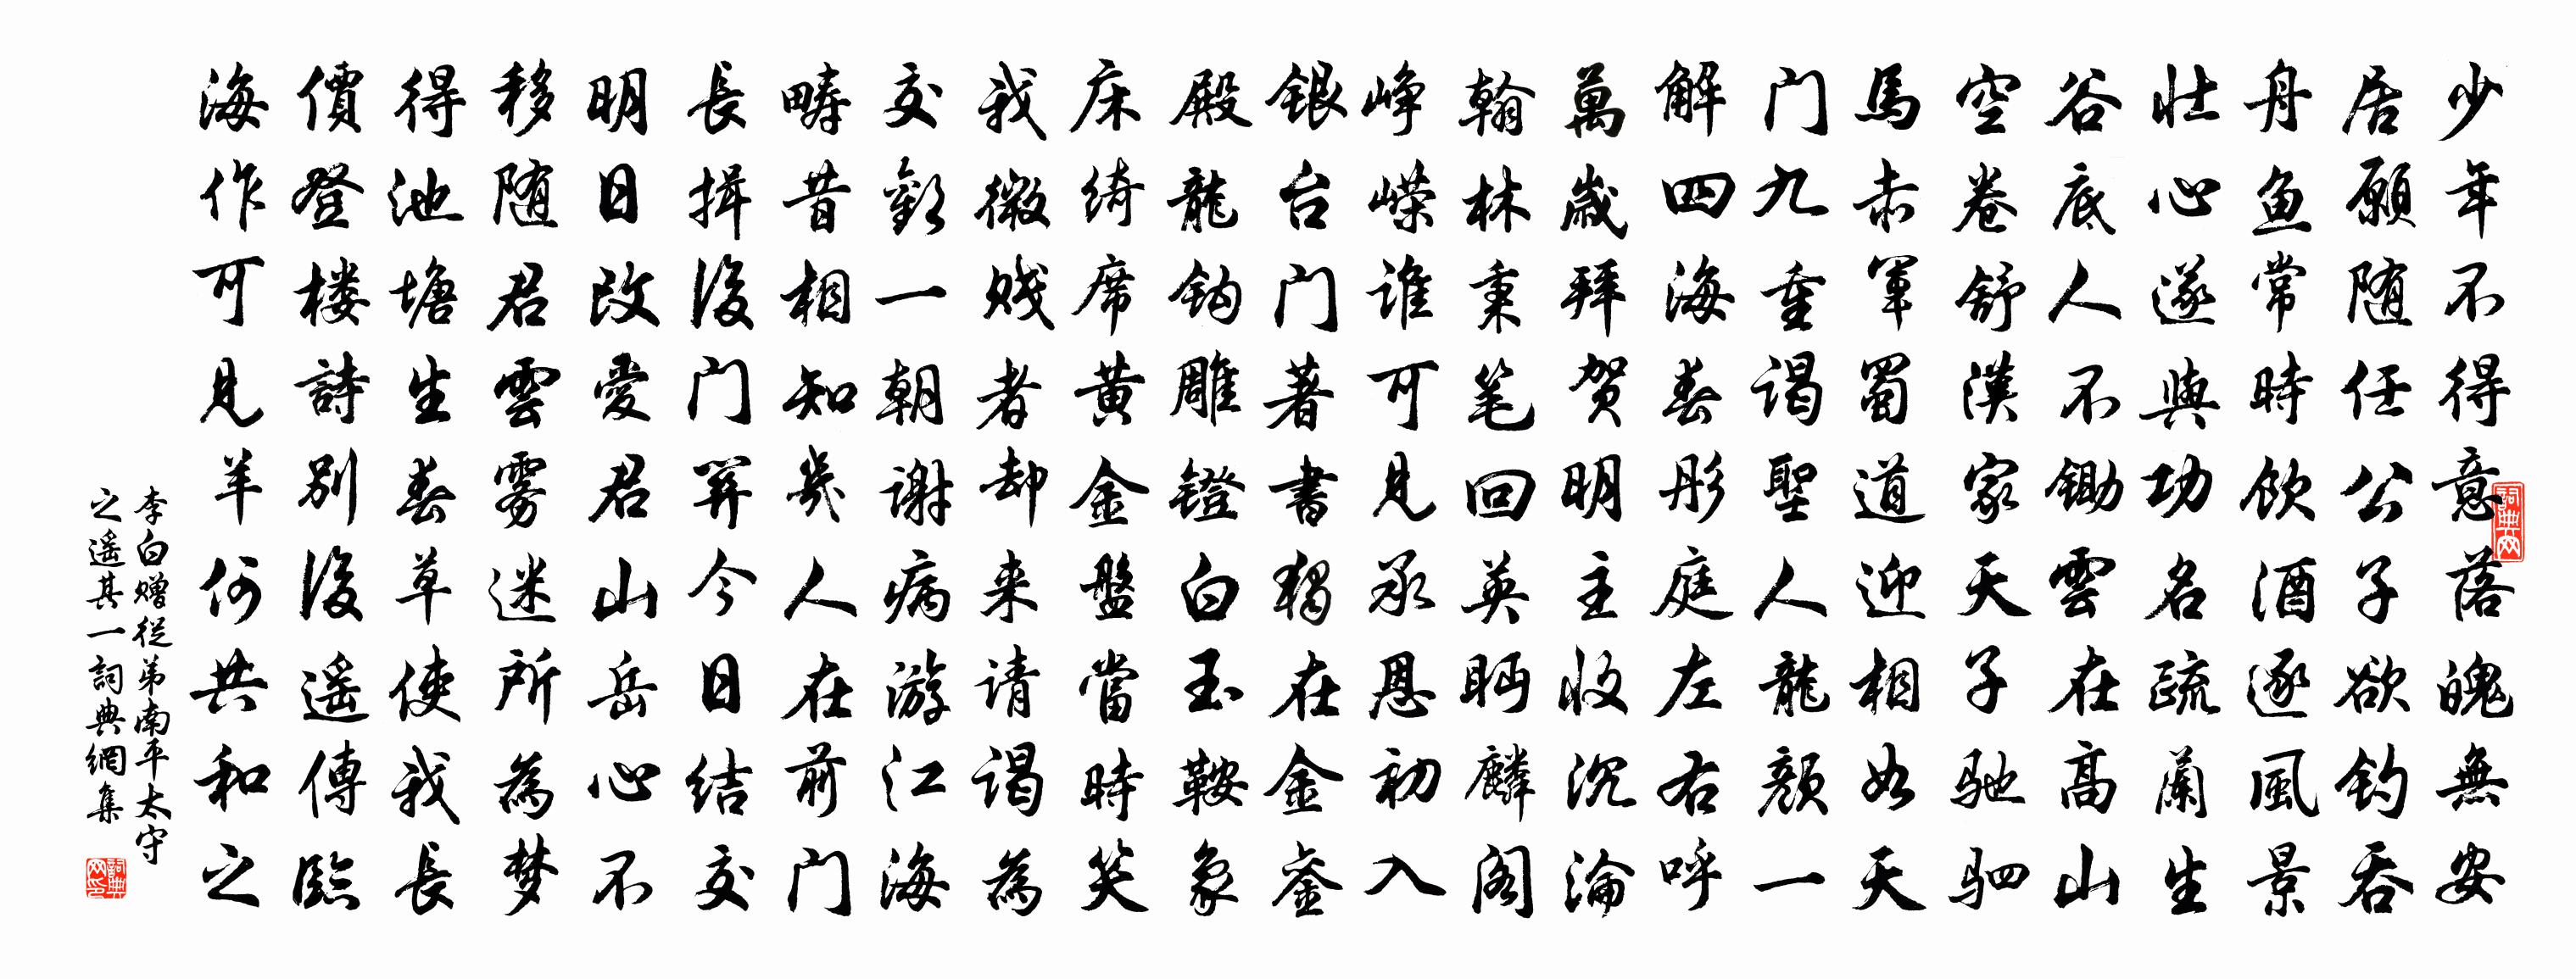 少年不得意落魄無安
居願随任公子欲钓吞
舟鱼常時飲酒逐風景
壮心遂與功名疏蘭生
谷底人不锄雲在高山
空卷舒漢家天子驰驷
馬赤軍蜀道迎相如天
门九重谒聖人龍颜一
解四海春彤庭左右呼
萬歲拜贺明主收沉淪
翰林秉笔回英眄麟阁
峥嵘谁可見承恩初入
銀台门著書獨在金銮
殿龍钩雕镫白玉鞍象
床绮席黄金盤當時笑
我微贱者却来请谒為
交歡一朝謝病游江海
疇昔相知幾人在前门
長揖後门関今日结交
明日改愛君山岳心不
移随君雲雾迷所為梦
得池塘生春草使我長
價登楼詩别後遥傳臨
海作可見羊何共和之
李白赠從弟南平太守
之遥其一詞典網集
詞典网
詞典网印